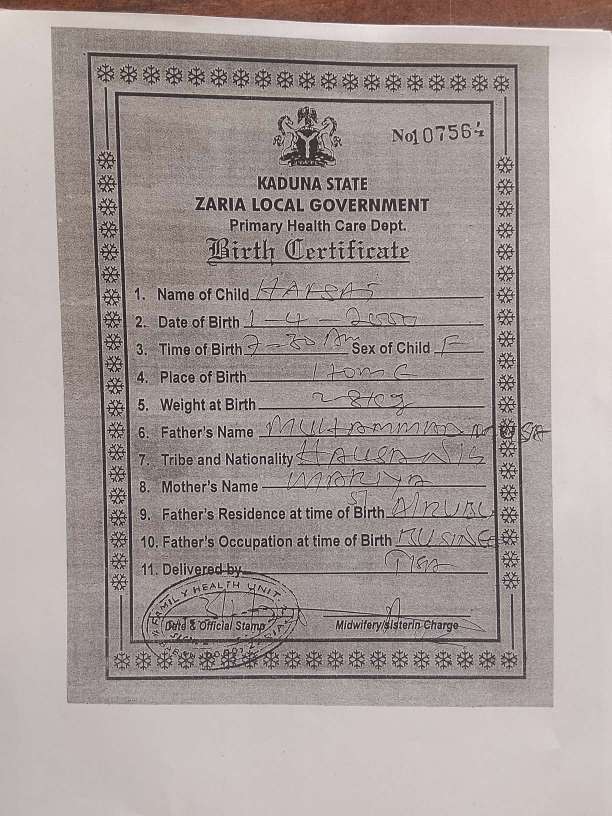 No 107564
KADUNA STATE
ZARIA LOCAL GOVERNMENT
Primary Health Care Dept.
Birth Certificate
1. Name of Child HAFSAT
2. Date of Birth 1-4-2000
3. Time of Birth 7-30 AM Sex of Child F
4. Place of Birth Home
5. Weight at Birth 2-8kg
6. Father's Name MUHAMMAD MUSA
7. Tribe and Nationality HAUSA NIG
8. Mother's Name MARIYA
9. Father's Residence at time of Birth
10. Father's Occupation at time of Birth BUSINES
11. Delivered by
FAMILY HEALTH UNIT
Date & Official Stamp Midwifery/sisterin Charge